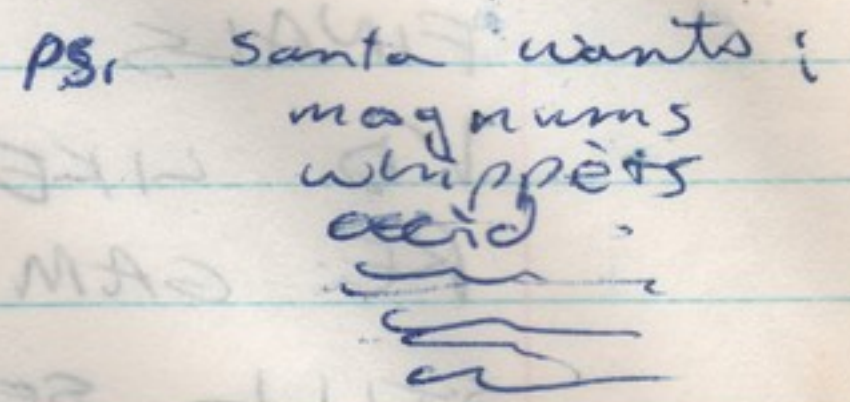 ps. Santa wants:
magnums
whippets
acid